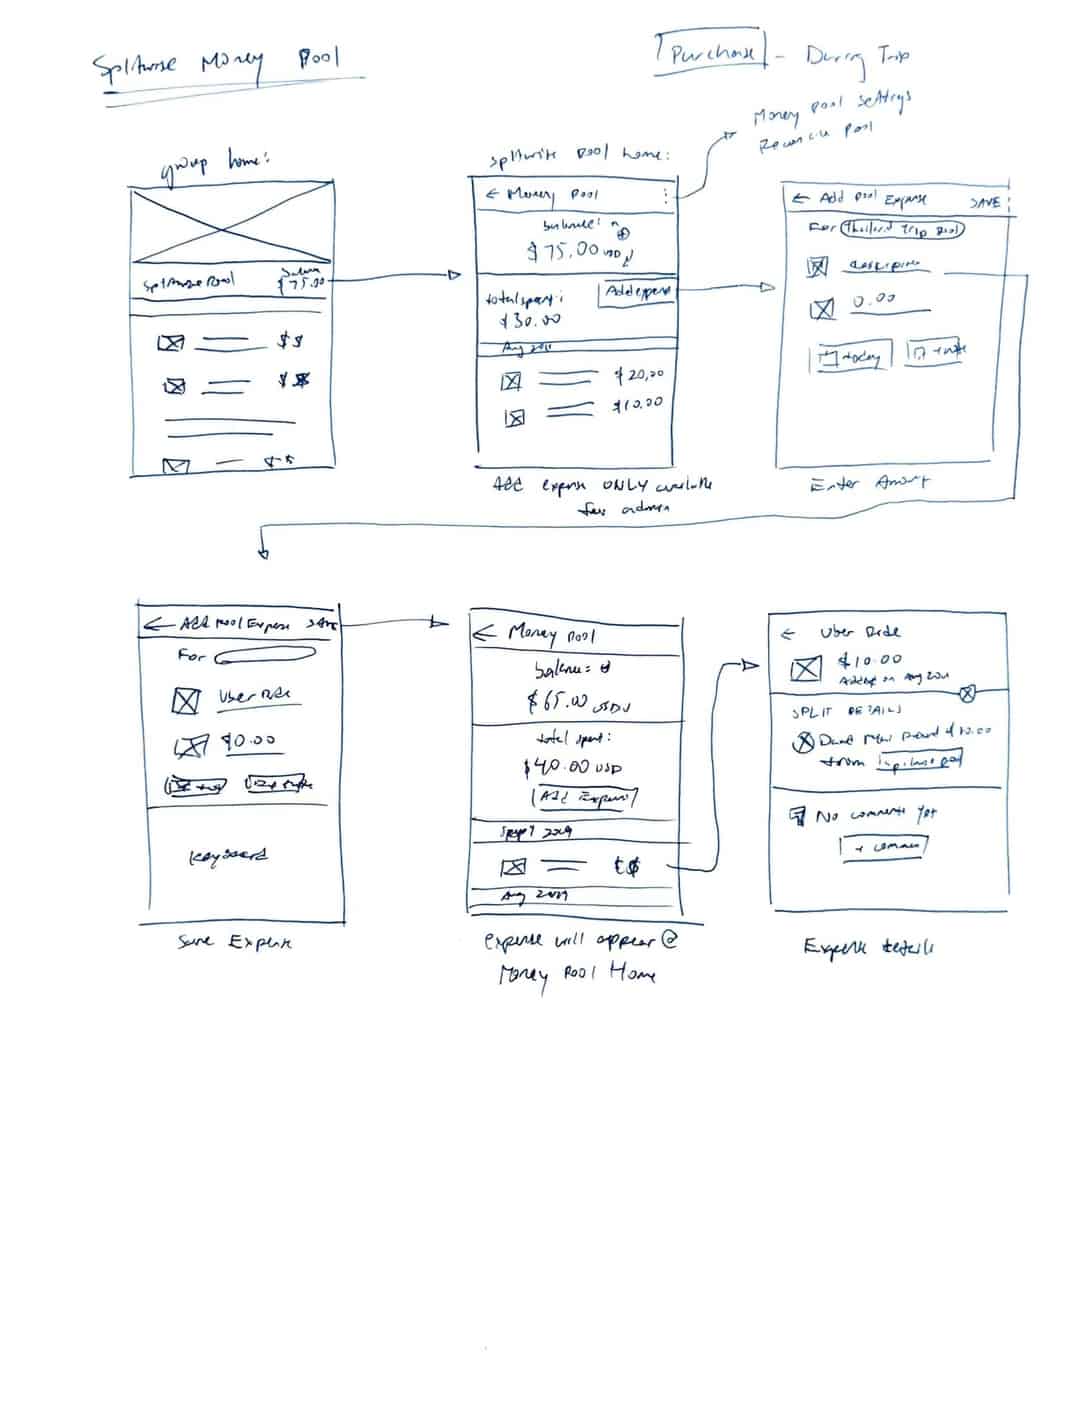 Splitwise Money Pool
Purchase - During Trip
Money pool settings
Reconcile Pool
group home:
Splitwise Pool
balance
$75.00
$$
$$
$$
splitwise pool home:
← Money Pool
balance:
$75.00 USD
total spent:
$30.00
Add expense
Aug 2019
$20.00
$10.00
Add expense ONLY available
for admin
← Add Pool Expense SAVE
For Thailand Trip Pool
description
0.00
today
+ note
Enter Amount
← Add Pool Expense SAVE
For
Uber Ride
$0.00
Keyboard
Save Expense
← Money Pool
balance:
$65.00 USD
total spent:
$40.00 USD
Add Expense
Sept 2019
$$
Aug 2019
expense will appear @
Money Pool Home
← Uber Ride
$10.00
Added on Aug
SPLIT DETAILS
$10.00
from
No comments yet
+ comment
Expense details